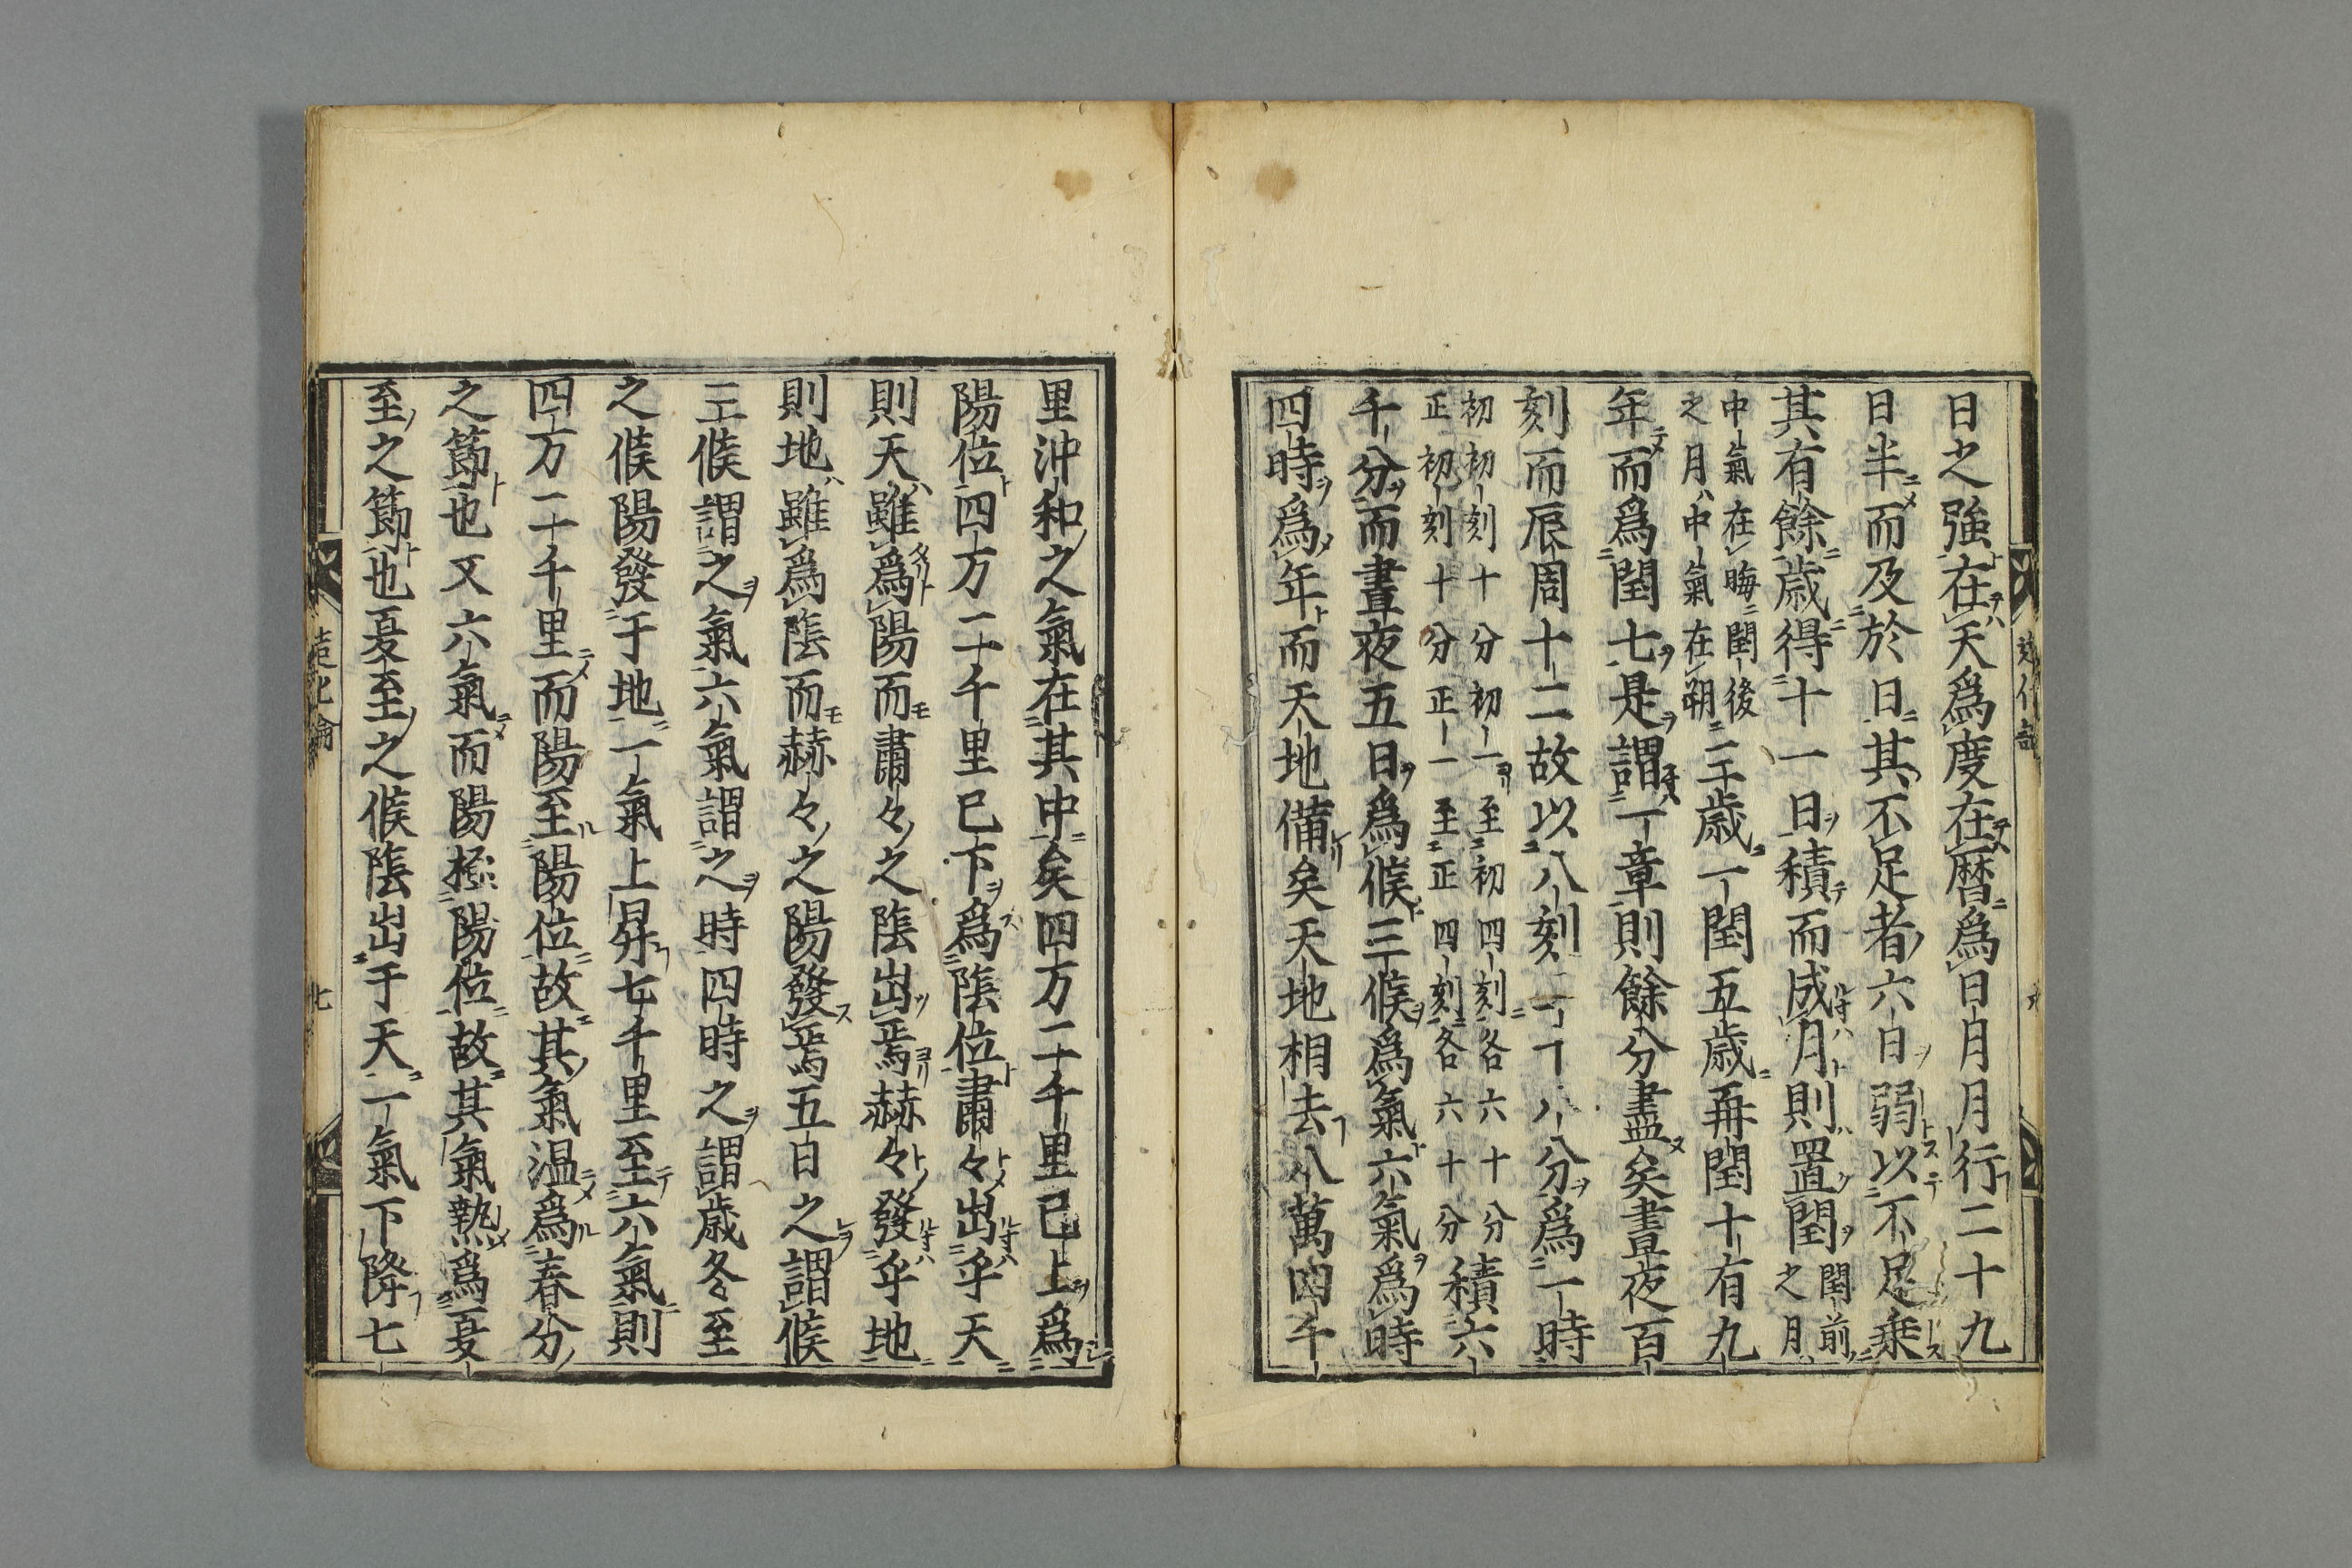 日之強在天爲度在暦爲日月月行二十九
日半而及於日其不足者六日弱以不足乗
其有餘歳得十一日積而成月則置閏閏前之月
中氣在晦閏後之月中氣在朔三歳一閏五歳再閏十有九
年而爲閏七是謂一章則餘分盡矣晝夜百
刻而辰周十二故以八刻二十八分爲一時
初初刻十分初一至初四刻各六十分
正初刻十分正一至正四刻各六十分積六
千分而晝夜五日爲候三候爲氣六氣爲時
四時爲年而天地備矣天地相去八萬四千
里沖和之氣在其中矣四万二千里已上爲
陽位四万二千里已下爲陰位肅々出乎天
則天雖爲陽而肅々之陰出焉赫々發乎地
則地雖爲陰而赫々之陽發焉五日之謂候
三候謂之氣六氣謂之時四時之謂歳冬至
之候陽發于地一氣上昇七千里至六氣則
四万二千里而陽至陽位故其氣温爲春分
之節也又六氣而陽極陽位故其氣熱爲夏
至之節也夏至之候陰出于天一氣下降七
造化論
七